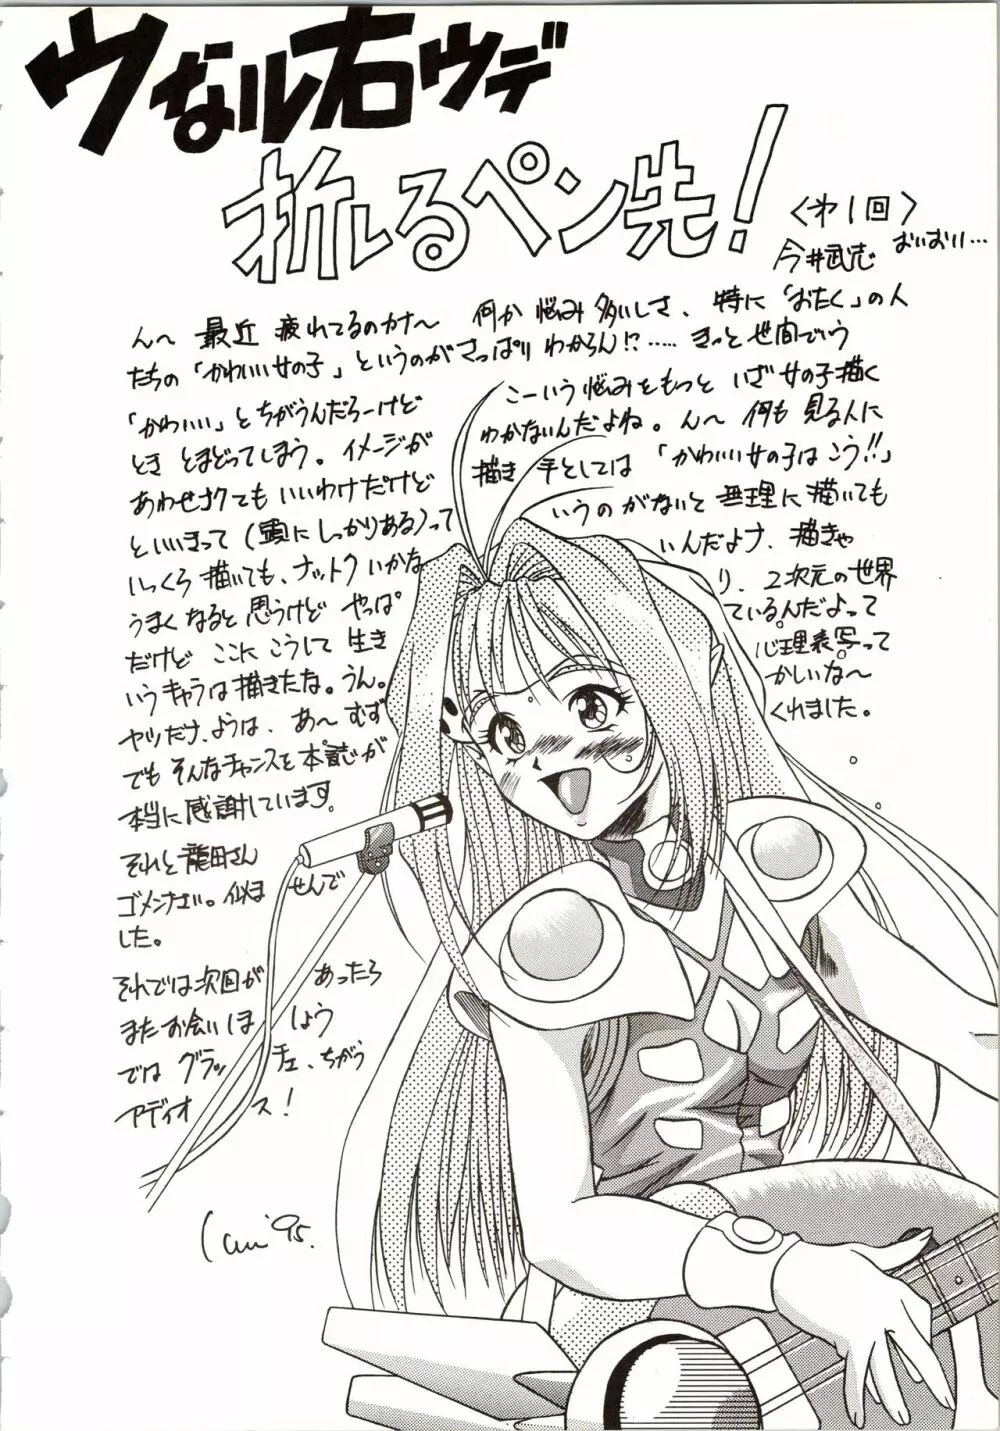 ウなル右ウデ
折しるペン先!
〈オ1回〉
今井武志 おいおい…
ん〜 最近 疲れてるのカナ〜 何か悩み多いしさ、特に「おたく」の人
たちの「かわいい女の子」というのがさっぱりわからん!?…… きっと世間でいう
「かわいい」とちがうんだろーけど こーいう悩みをもっと いざ女の子描く
とき とまどってしまう。イメージが わかないんだよね。ん〜 何も見る人に
あわせナクてもいいわけだけど 描き手としては「かわいい女の子はこう!!」
といいきって(頭にしっかりある)って いうのがないと無理に描いても
いっくら描いても、ナットクいかな いんだよナ、描きゃ
うまくなると思うけど やっぱ り、2次元の世界
だけど ここに こうして 生き ているんだよって
いうキャラは描きたな。うん。 心理表写って
ヤツだナ、ようは、あ〜むず かしいな〜
でもそんなチャンスを本誌が くれました。
本当に感謝しています。
それと龍田さん
ゴメンナさい。似ま せんで
した。
それでは次回が あったら
またお会いしま しょう
では グラッ チェ、ちがう
アディオ ス!
Imai '95.